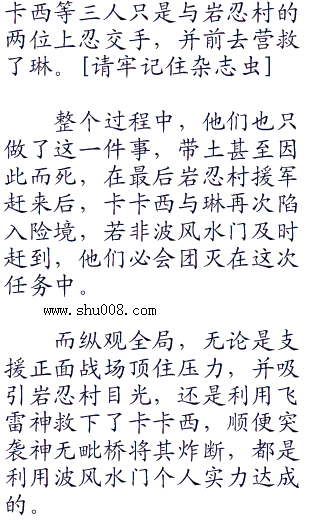 卡西等三人只是与岩忍村的
两位上忍交手，并前去营救
了琳。[请牢记住杂志虫]
整个过程中，他们也只
做了这一件事，带土甚至因
此而死，在最后岩忍村援军
赶来后，卡卡西与琳再次陷
入险境，若非波风水门及时
赶到，他们必会团灭在这次
任务中。
www.shu008.com
而纵观全局，无论是支
援正面战场顶住压力，并吸
引岩忍村目光，还是利用飞
雷神救下了卡卡西，顺便突
袭神无毗桥将其炸断，都是
利用波风水门个人实力达成
的。